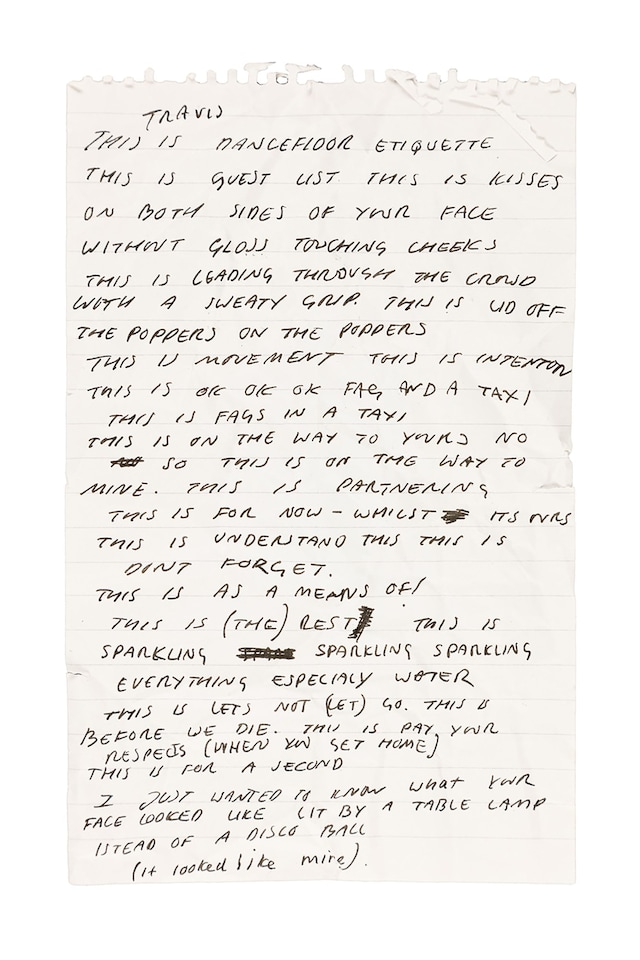 TRAVIS
THIS IS DANCEFLOOR ETIQUETTE
THIS IS GUEST LIST. THIS IS KISSES
ON BOTH SIDES OF YOUR FACE
WITHOUT GLOSS TOUCHING CHEEKS
THIS IS LEADING THROUGH THE CROWD
WITH A SWEATY GRIP. THIS IS LID OFF
THE POPPERS ON THE POPPERS
THIS IS MOVEMENT THIS IS INTENTON
THIS IS OK OK OK FAG AND A TAXI
THIS IS FAGS IN A TAXI
THIS IS ON THE WAY TO YOURS NO
SO THIS IS ON THE WAY TO
MINE. THIS IS PARTNERING
THIS IS FOR NOW - WHILST ITS OURS
THIS IS UNDERSTAND THIS THIS IS
DONT FORGET.
THIS IS AS A MEANS OF/
THIS IS (THE) REST THIS IS
SPARKLING SPARKLING SPARKLING
EVERYTHING ESPECIALY WATER
THIS IS LETS NOT (LET) GO. THIS IS
BEFORE WE DIE. THIS IS PAY YOUR
RESPECTS (WHEN YOU GET HOME)
THIS IS FOR A SECOND
I JUST WANTED TO KNOW WHAT YOUR
FACE LOOKED LIKE LIT BY A TABLE LAMP
ISTEAD OF A DISCO BALL
(it looked like mine).